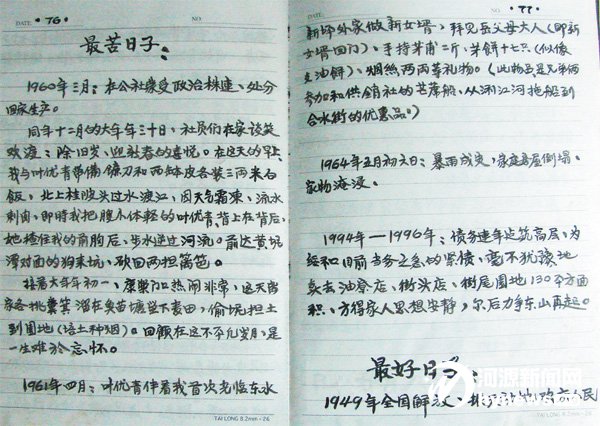 DATE: ·76· NO.
最苦日子:
1960年三月:在公社蒙受政治株連、处分
回家生产。
同年十二月的大年三十日,社员们在家談笑
欢渡;除旧岁、迎新春的喜悦。在这天的早上
我与叶优青带备镰刀和两条皮各装三两米白
飯,北上桂陂头过水渡江,因天气霜凍、流水
刺肉,即時我把瘦小体轻的叶优青,背上在背后,
她搂住我的前胸后、步水逆过河流。前达黄坑
潭对面的狗来坑、砍回两担篱笆。
在大年年初一、康巢加热闹非常,这天
家各挑 溜在奥苗塘 下麦田,偷 担土
到園地(培土种烟)。回顾在这不平凡岁月、是
一生难於忘怀。
1961年四月:叶优青伴着我首次光临东水
TAI LONG 8.2mm-26
DATE: ·77· NO.
新 外家做新女壻,拜见岳父母大人(即新
女壻回门)、手持茅甫二斤、茅餅十七只(似像
豆油餅)、烟絲两两等礼物。(此物吾是兄弟俩
参加和供銷社的芒 船、从浰江河拖船到
合水街的优惠品。)
1964年五月初六日:暴雨成灾,家庭房屋倒塌、
家物淹浸。
1994年—1996年:债务连年点筑高层、为
缓和目前当务之急的緊债、毫不犹豫地
卖去油 店、街头店、街尾園地130平方面
积、方得家人思想安静,尔后力争东山再起。
最好日子
1949年全国解放、
TAI LONG 8.2mm-26
河源新闻网